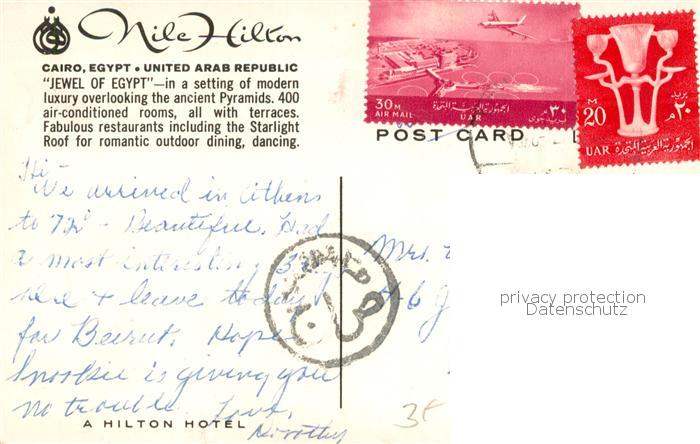 Nile Hilton
CAIRO, EGYPT • UNITED ARAB REPUBLIC
"JEWEL OF EGYPT"—in a setting of modern
luxury overlooking the ancient Pyramids. 400
air-conditioned rooms, all with terraces.
Fabulous restaurants including the Starlight
Roof for romantic outdoor dining, dancing.
30 M
AIR MAIL
الجمهورية العربية المتحدة
UAR
٣٠ م
بريد جوى
M
20
بريد
٢٠ م
UAR الجمهورية العربية المتحدة
POST CARD
Hi-
We arrived in Athens
to 72° - Beautiful. Had
a most interesting 3
here + leave today
for Beirut. Hope
Snookie is giving you
no trouble. Love,
Dorothy
Mrs.
privacy protection
Datenschutz
A HILTON HOTEL